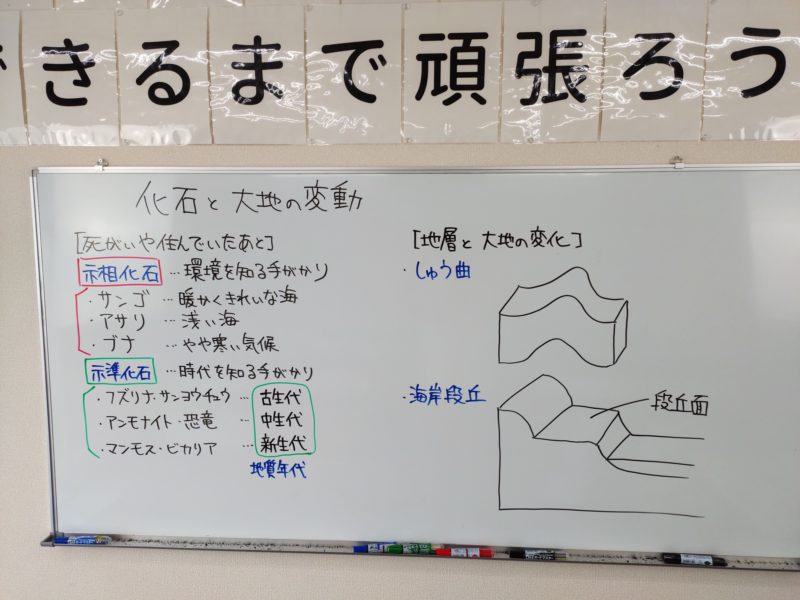 できるまで頑張ろう
化石と大地の変動
[死がいや住んでいたあと]
示相化石…環境を知る手がかり
・サンゴ…暖かくきれいな海
・アサリ…浅い海
・ブナ…やや寒い気候
示準化石…時代を知る手がかり
・フズリナ・サンヨウチュウ…古生代
・アンモナイト・恐竜…中生代
・マンモス・ビカリア…新生代
地質年代
[地層と大地の変化]
・しゅう曲
・海岸段丘
段丘面